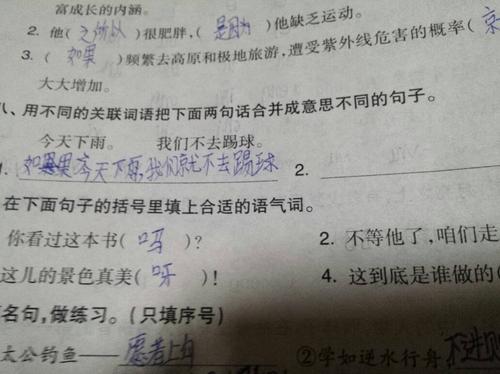 富成长的内涵。
2. 他(之所以)很肥胖,(是因为)他缺乏运动。
3. (如果)频繁去高原和极地旅游,遭受紫外线危害的概率(京
大大增加。
八、用不同的关联词语把下面两句话合并成意思不同的句子。
今天下雨。 我们不去踢球。
1. 如果今天下雨,我们就不去踢球 2.
在下面句子的括号里填上合适的语气词。
你看过这本书(吗)? 2. 不等他了,咱们走
这儿的景色真美(呀)! 4. 这到底是谁做的(
名句,做练习。(只填序号)
太公钓鱼——愿者上钩 ②学如逆水行舟,不进则